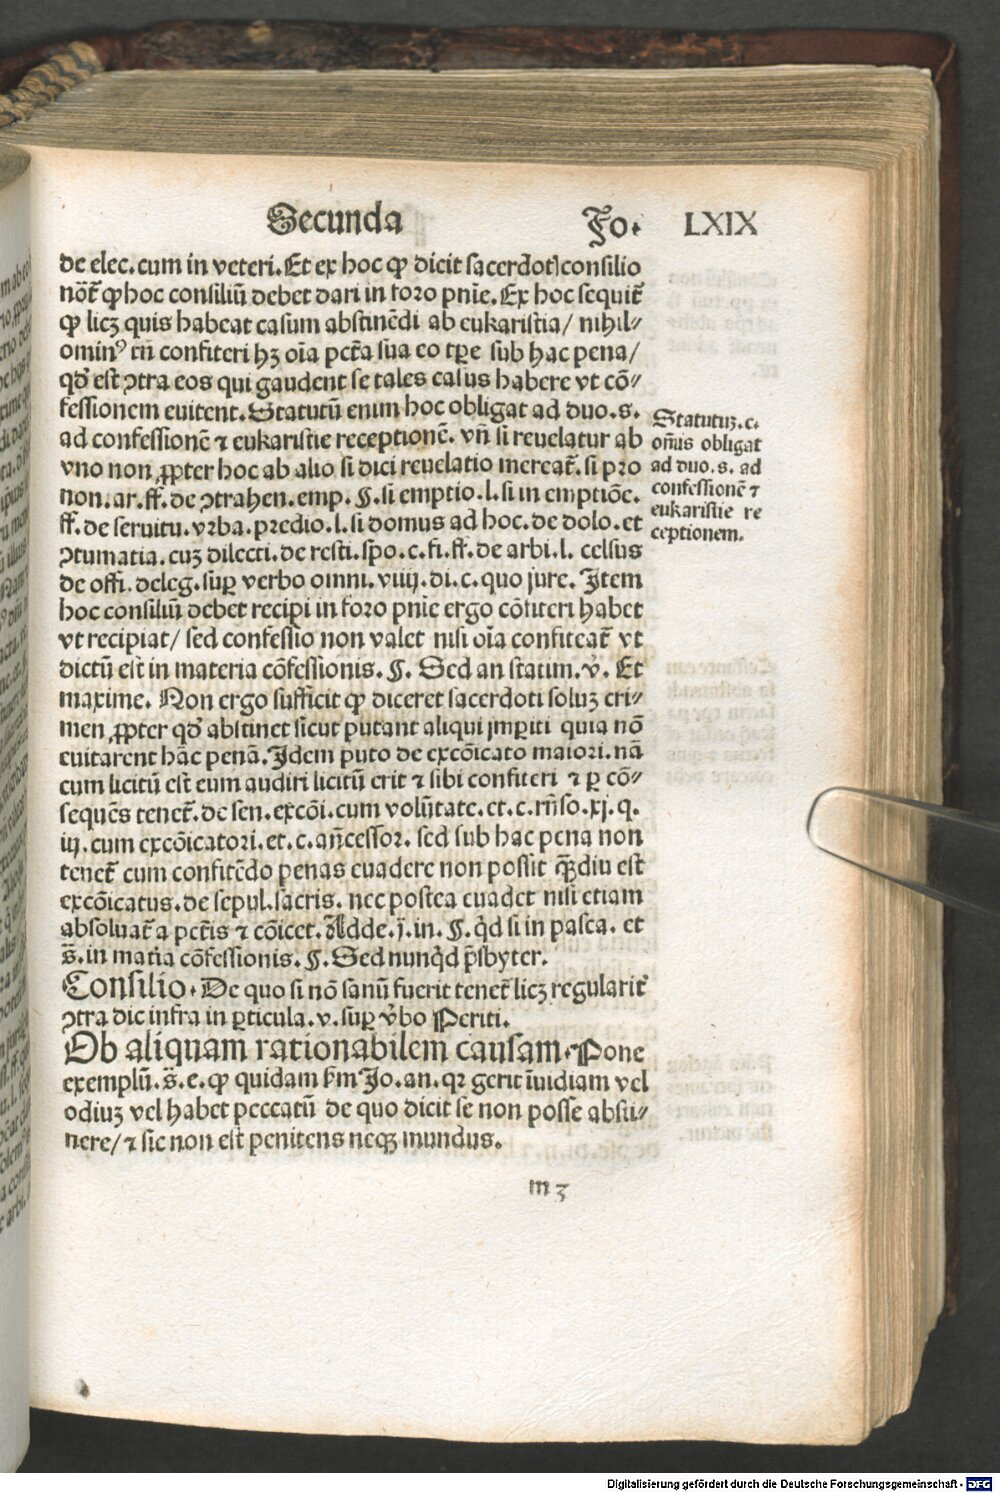 Secunda Fo. LXIX
de elec. cum in veteri. Et ex hoc ꝙ dicit sacerdotꝭ consilio
nōt̄ ꝙ hoc consiliū debet dari in foro pnīe. Ex hoc sequit̄
ꝙ licꝫ quis habeat casum abstinēdi ab eukaristia/ nihil//
ominꝰ tn̄ confiteri hꝫ oīa pctā sua eo tꝑe sub hac pena/
qď est ↄtra eos qui gaudent se tales casus habere vt cō//
fessionem euitent. Statutū enim hoc obligat ad duo. s.
ad confessionē ⁊ eukaristie receptionē. vn̄ si reuelatur ab
vno non ꝓpter hoc ab alio si dici reuelatio mereat̄. si pro
non. ar. ff. de ↄtrahen. emp. ꝭ. si emptio. l. si in emptiōe.
ff. de seruitu. vrba. predio. l. si domus ad hoc. de dolo. et
ↄtumatia. cuꝫ dilecti. de resti. spo. c. fi. ff. de arbi. l. celsus
de offi. deleg. suꝑ verbo omni. viij. di. c. quo jure. Item
hoc consiliū debet recipi in foro pnīe ergo cōfiteri habet
vt recipiat/ sed confessio non valet nisi oīa confiteat̄ vt
dictū est in materia cōfessionis. ꝭ. Sed an statim. v̄. Et
maxime. Non ergo sufficit ꝙ diceret sacerdoti soluꝫ cri//
men ꝓpter qď abstinet sicut putant aliqui jmꝑiti quia nō
euitarent hāc penā. Idem puto de excōicato maiori. nā
cum licitū est eum audiri licitū erit ⁊ sibi confiteri ⁊ ꝑ cō//
sequēs tenet̄. de sen. excōi. cum volūtate. et. c. rn̄so. xj. q.
iij. cum excōicatori. et. c. an̄cessor. sed sub hac pena non
tenet̄ cum confitēdo penas euadere non possit qꝫdiu est
excōicatus. de sepul. sacris. nec postea euadet nisi etiam
absoluat̄ a pctīs ⁊ cōicet. Adde. j̄. in. ꝭ. qd̓ si in pasca. et
s̄. in matīa cōfessionis. ꝭ. Sed nunqd̓ p̄sbyter.
Consilio. De quo si nō sanū fuerit tenet̄ licꝫ regularit̄
ↄtra dic infra in ꝑticula. v. suꝑ v̓bo Periti.
Ob aliquam rationabilem causam. Pone
exemplū. s̄. e. ꝙ quidam km̄ Jo. an. qꝛ gerit īuidiam vel
odiuꝫ vel habet peccatū de quo dicit se non posse absti//
nere/ ⁊ sic non est penitens neqꝫ mundus.
m 3
Statutuꝫ. c.
om̄is obligat
ad duo. s. ad
confessionē ⁊
eukaristie re
ceptionem.
Digitalisierung gefördert durch die Deutsche Forschungsgemeinschaft - DFG